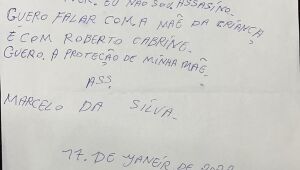 EU NÃO SOU ASSASINO.
QUERO FALAR COM.A MÃE DA CRIANÇA
E COM ROBERTO CABRINE.
QUERO. A PROTEÇÃO DE MINHA MÃE.
ASS.
MARCELO DA SILVA.
17. DE YANEIR DE